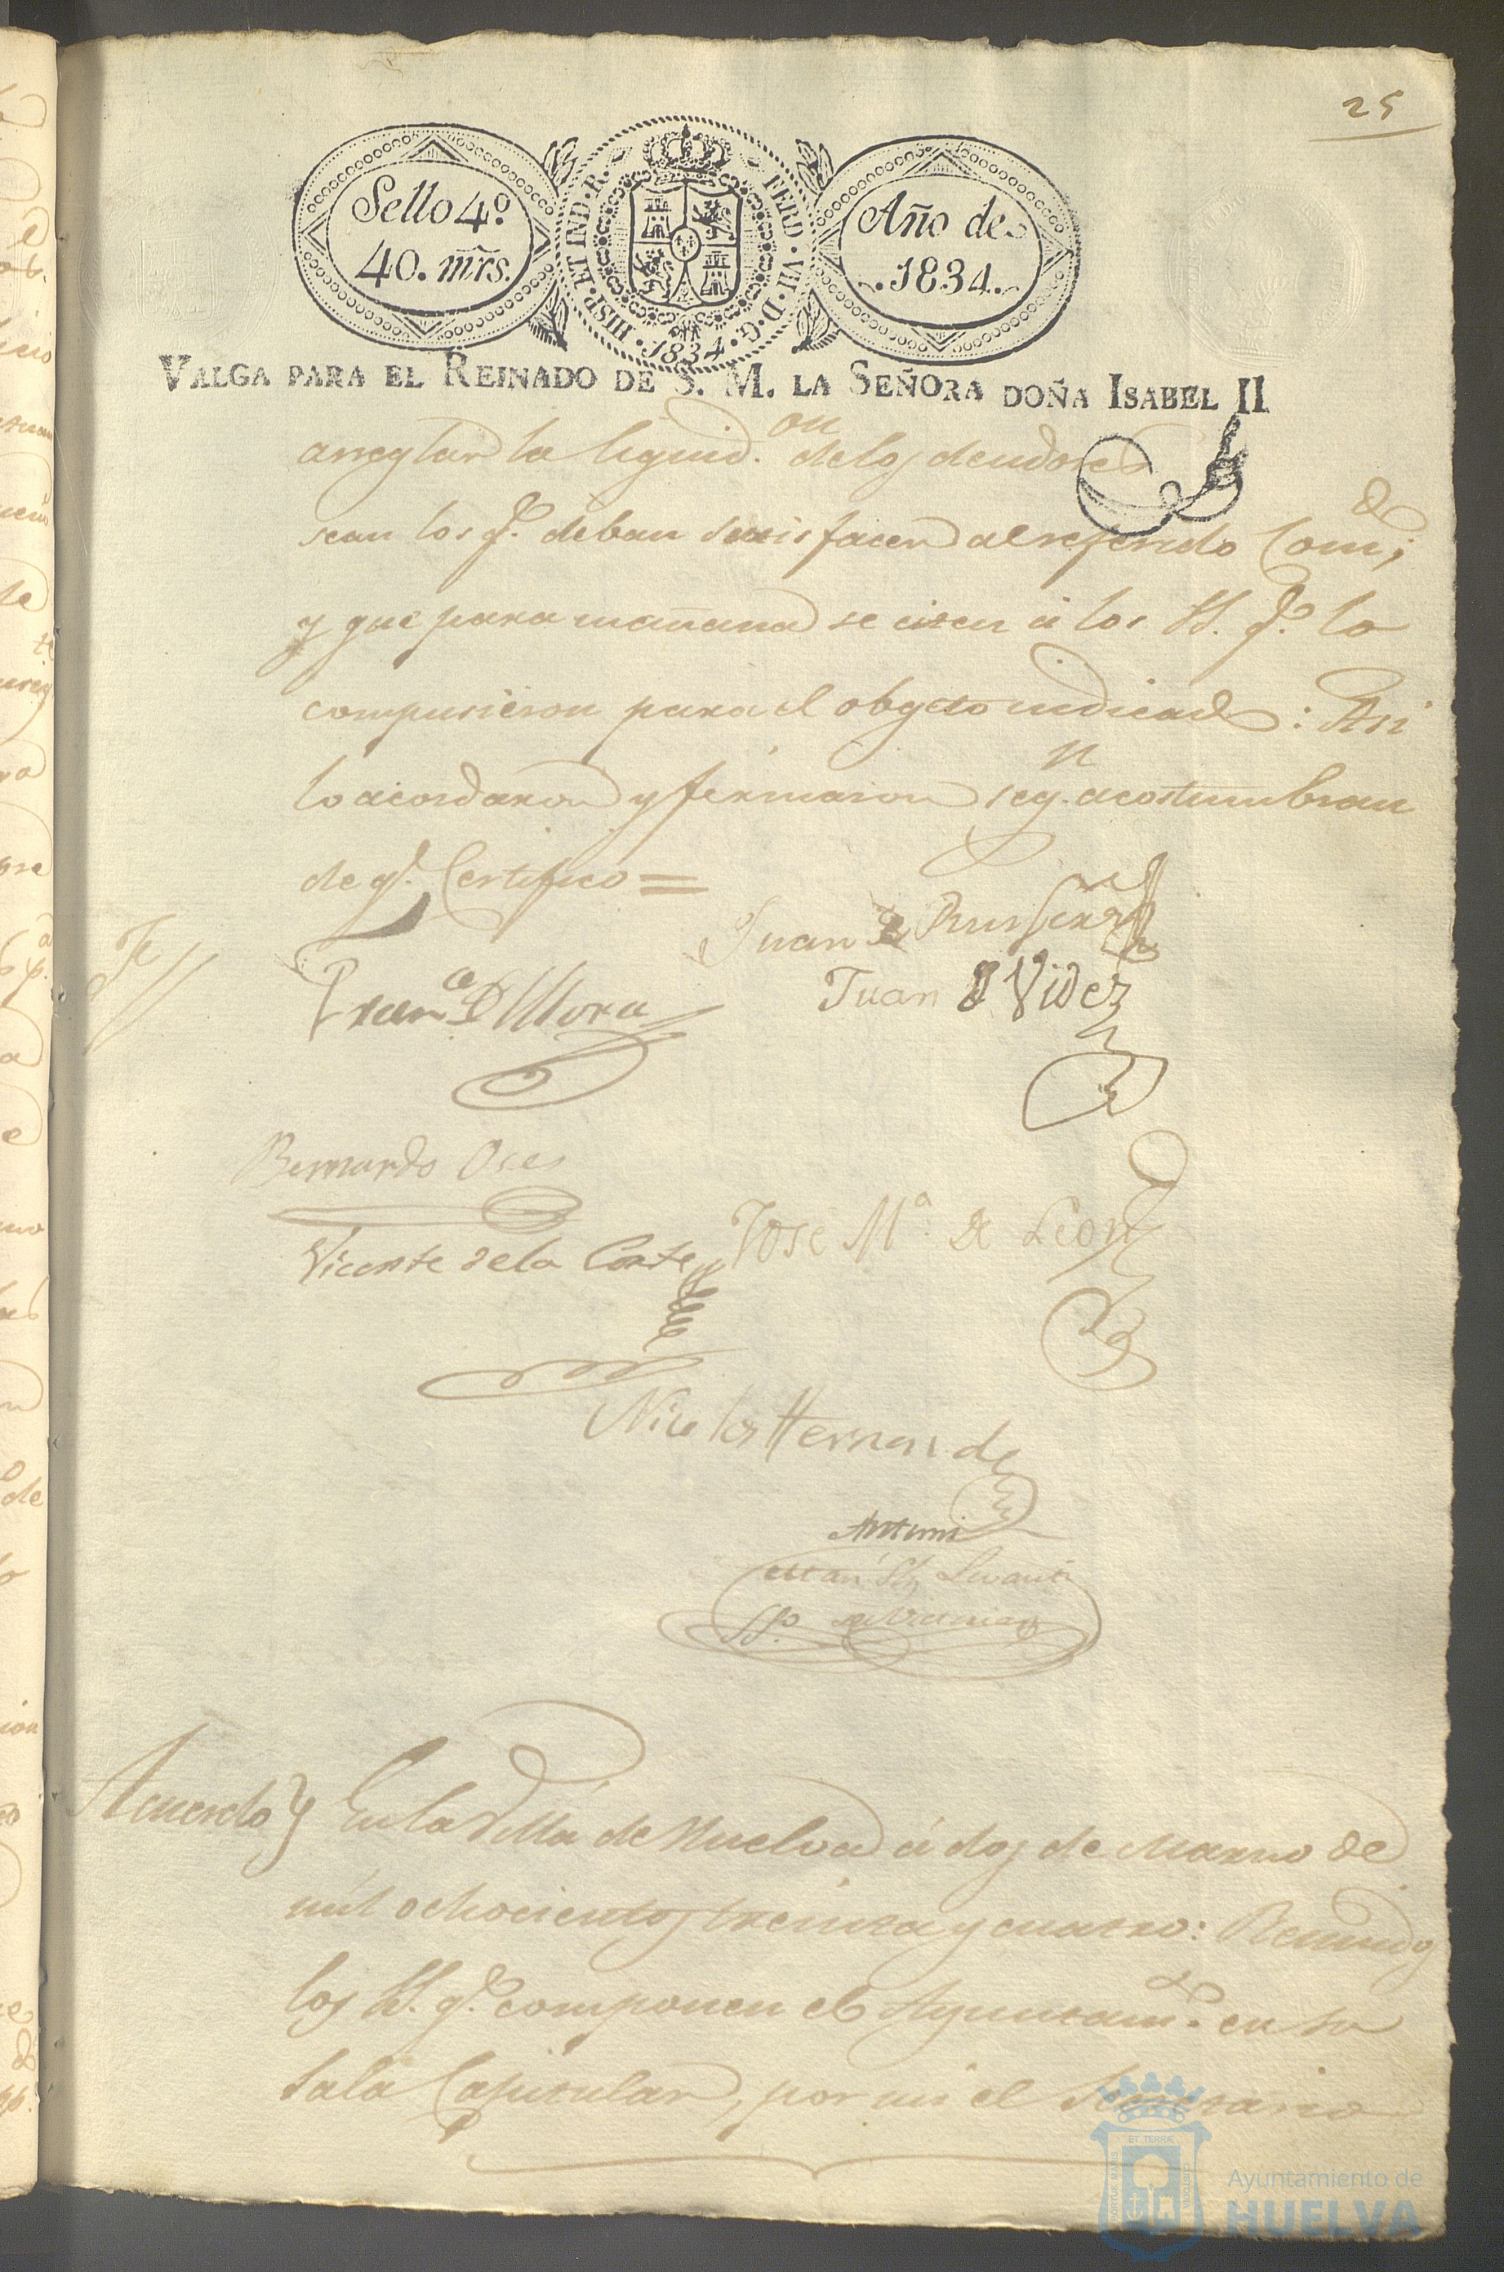 25
Sello 4º
40. mrs.
HISP. ET IND. R. FERD. VII. D. G. 1834.
Año de
.1834.
VALGA PARA EL REINADO DE S. M. LA SEÑORA DOÑA ISABEL II
arreglar la liquid.on delos deudores
sean los q.e deban satisfacer al referido Com.do;
y que para mañana se citen á los SS. q.e lo
compusieron para el obgeto indicado: Asi
lo acordaron y firmaron seg.n acostumbran
de q.e Certifico =
Juan de
Fran.co D Mora
Juan Videz
Bernardo Oses
Vicente de la Corte
José M.a de Leon
Nicolas Hernandez
Antemi
Acuerdo} En la Villa de Huelva á dos de Marzo de
mil ochocientos treinta y cuatro: Reunidos
los SS. q.e componen el Ayuntam.to en su
Sala Capitular, por mi el Secretario
ET TERRAE
Ayuntamiento de
HUELVA